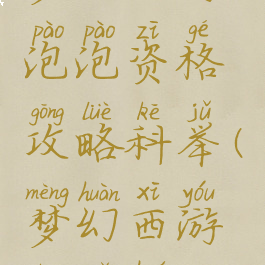 pào pào zī gé
泡泡资格
gōng lüè kē jǔ
攻略科举(
mèng huàn xī yóu
梦幻西游